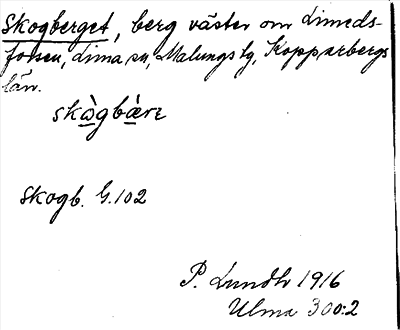 Skogberget, berg väster om Limeds-
forsen, Lima sn, Malungs tg, Kopparbergs
län.
skògbàrɛ
Skogb. G. 102
P. Lundh 1916
Ulma 300:2